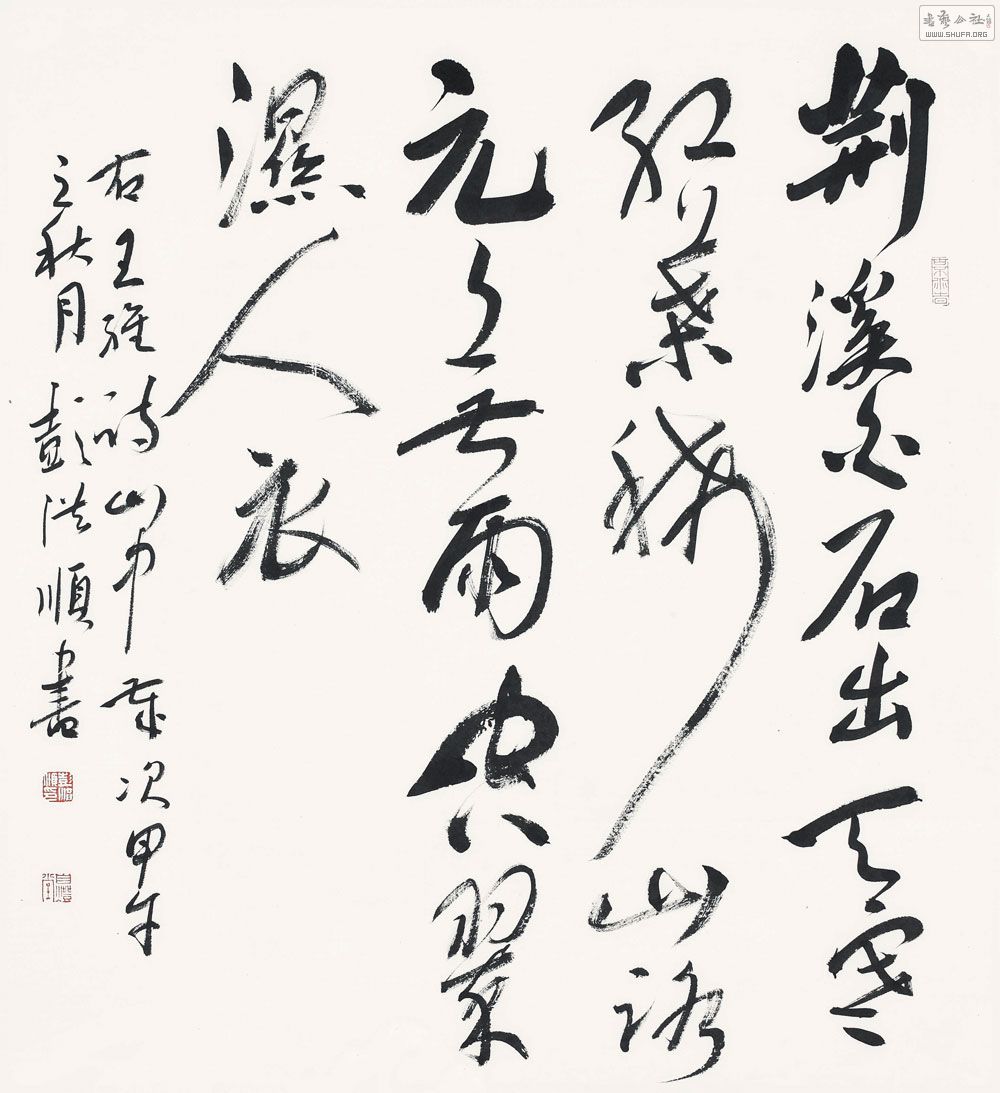 荆溪白石出天寒
红叶稀山路
元上无雨空翠
湿人衣
右王维诗山中岁次甲午
之秋月彭洪顺书
WWW.SHUFA.ORG